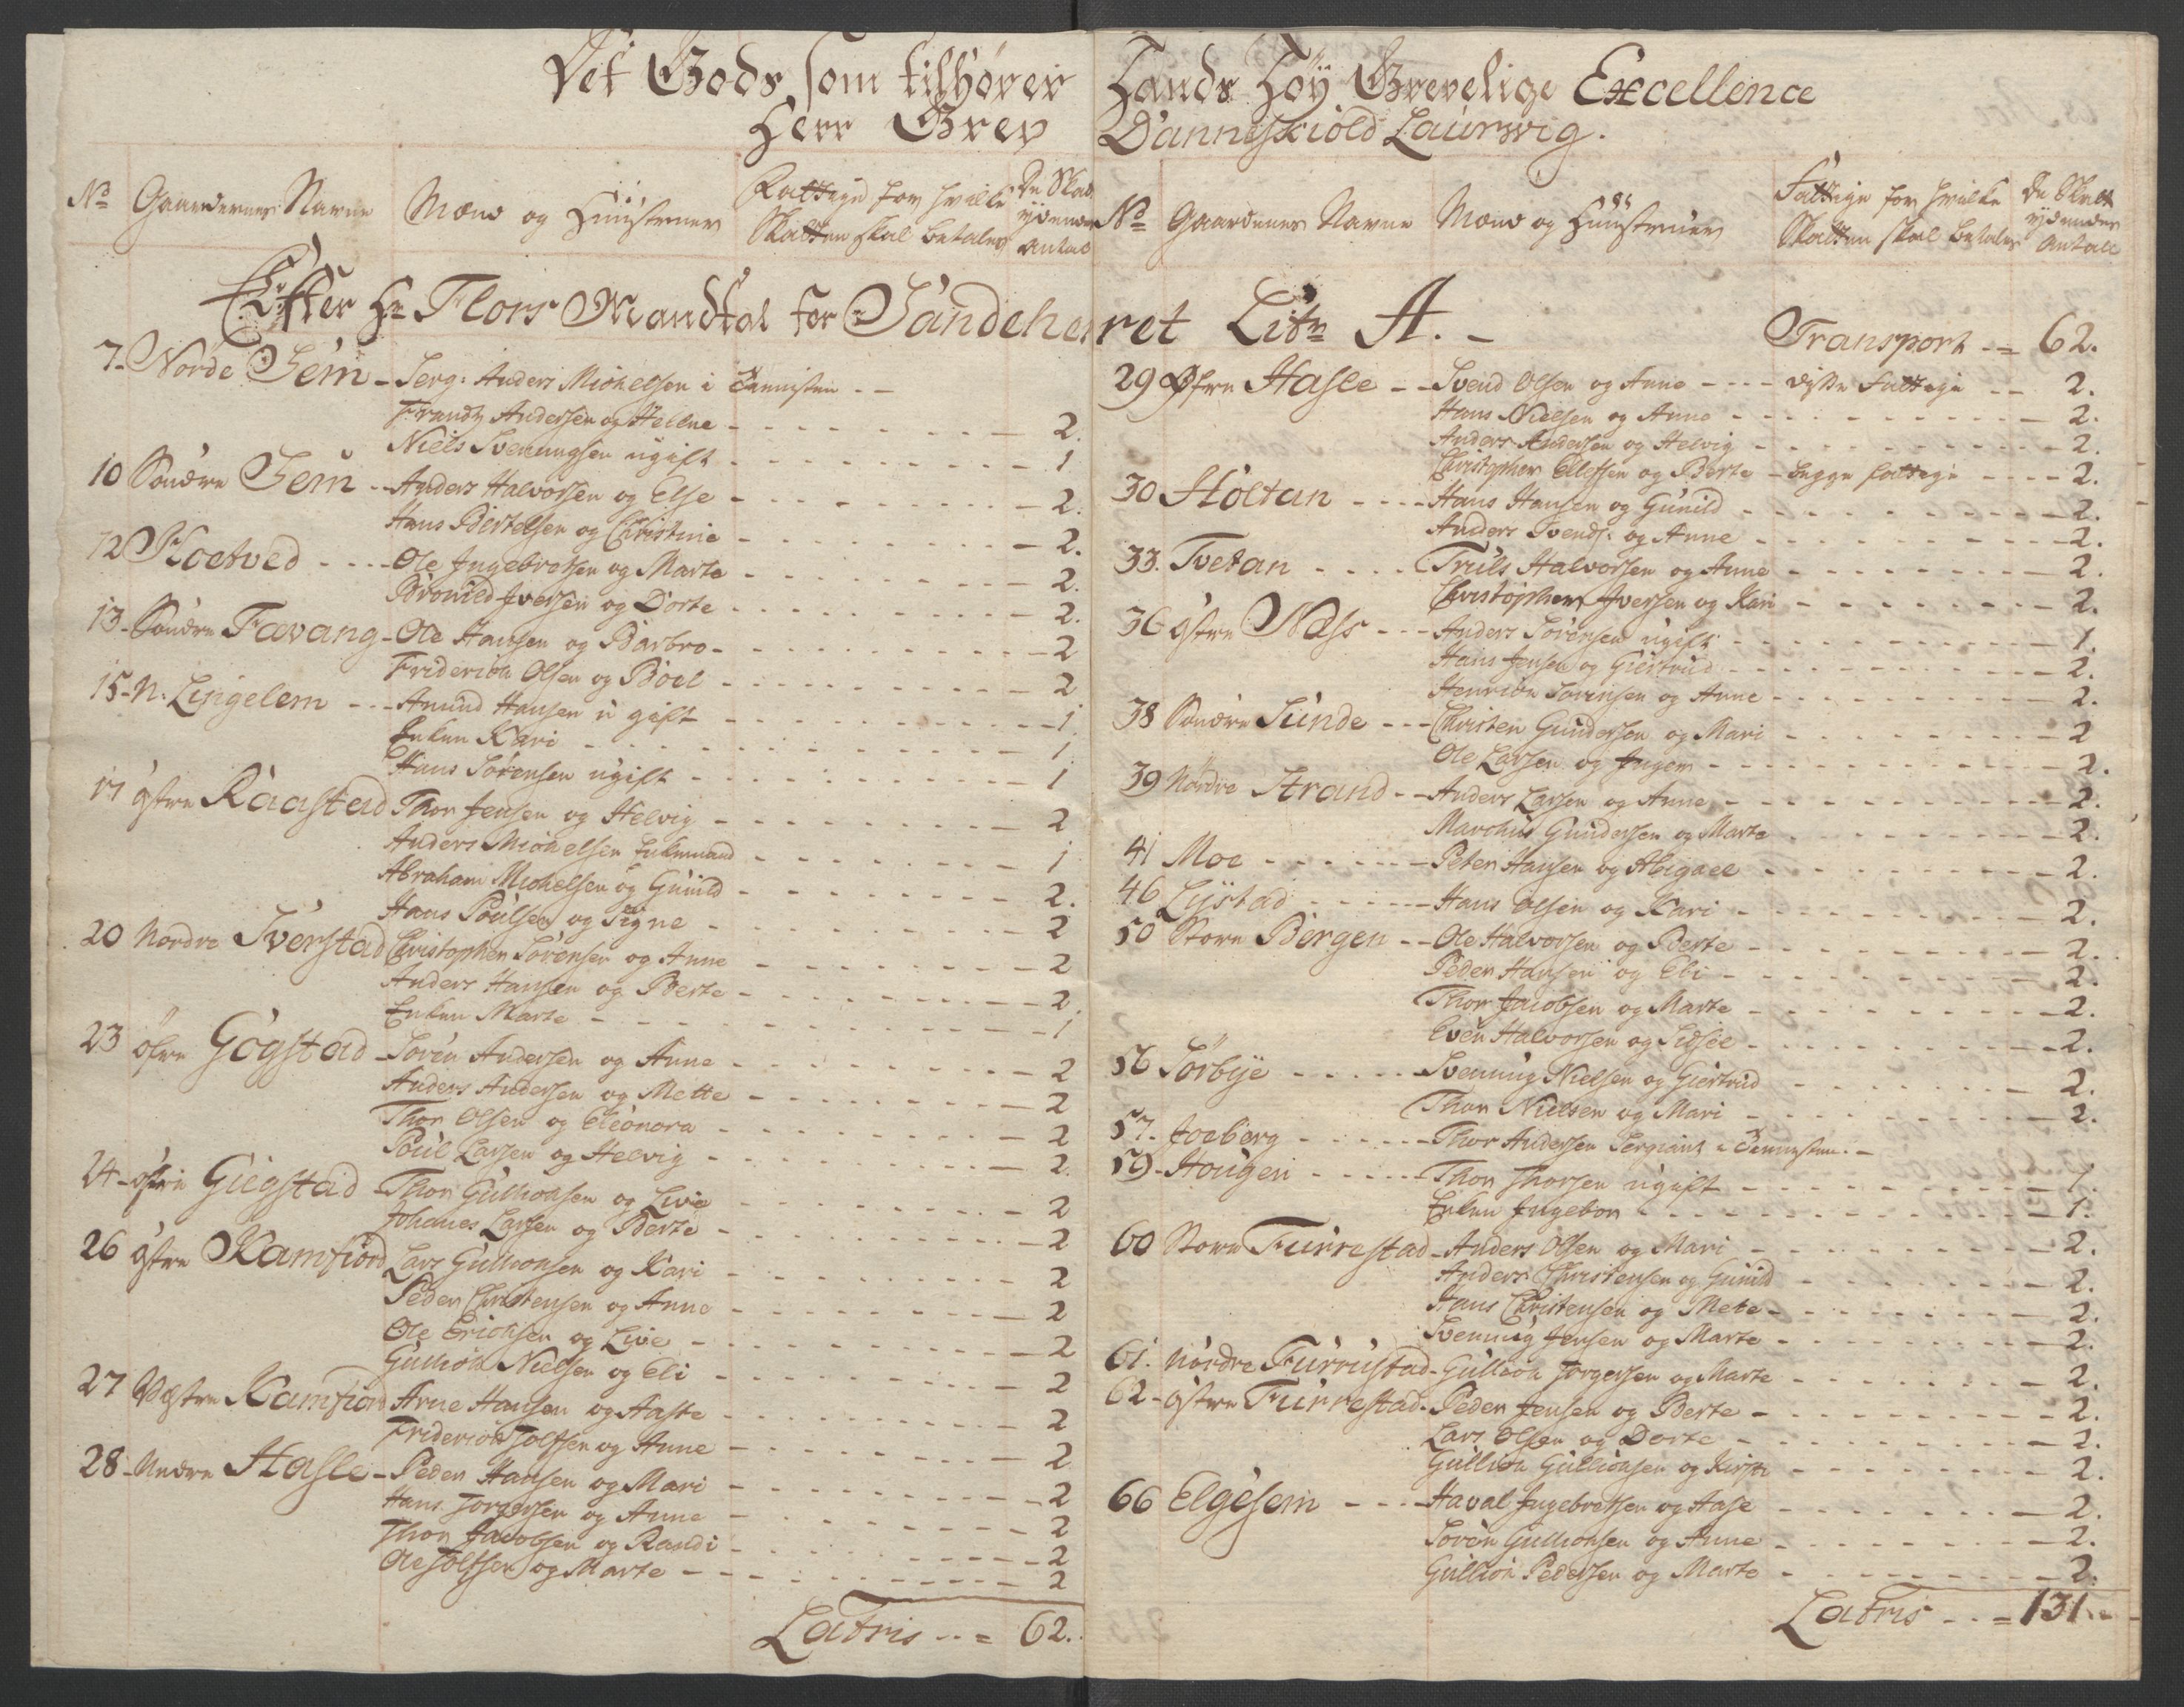 Det Gods som tilhører Hands Høÿ Grevelige Excellence
Herr Grev Danneskiold Laurwig.
No Gaardernes Navne Mænd og Hunstruer Fattige for hvilke Skatten skal betales De Skat ydendes Antal
Efter Hr Flors Mandtal for Sandeherret Litr A.
7 Nordre Sem Serg: Anders Michelsen i Tienisten
Frandz Andersen og Hellne 2.
Niels Svenungsen ugift 1
10 Søndre Sem Anders Halvorsen og Else 2.
Hans Bertelsen og Christine 2.
12 Hoetved Ole Ingebretsen og Marte 2.
Bronild Iversen og Dorte 2.
13 Søndre Favang Ole Hansen og Barbro 2
Friderich Olsen og Boel 2
15 N. Lingelem Amund Hansen u gift 1
Enken Kari 1
Hans Sørensen ugift 1
17 østre Raastad Thor Jensen og Helvig 2
Anders Michelsen Enkemand 1
Abraham Michelsen og Gunild 2.
Hans Poulsen og Signe 2
20 Nordre Sverstad Christopher Sørensen og Anne 2
Anders Hansen og Berte 2
Enken Marte 1
23 øfre Gogstad Soren Andersen og Anne 2
Anders Andersen og Mette 2
Thor Olsen og Eleonora 2
Poul Larsen og Helvig 2.
24 østre Giegstad Thor Gullichsen og Live 2
Johanes Larsen og Berte 2
26 østre Kamfiord Lars Gullichsen og Kari 2
Peder Christensen og Anne 2
Ole Erichsen og Live 2
Gullich Nielsen og Eli 2
27 Vestre Kamfiord Arne Hansen og Aaste 2
Friderich Tolfsen og Anne 2
28 Nedre Hasle Peder Hansen og Mari 2
Hans Torgersen og Anne 2
Thor Jacobsen og Randi 2
Ole Tolfsen og Marte 2
Latris 62.
No Gaardenes Navne Mænd og Hunstruer Fattige for hvilke Skatten skal betales De Skatt ydendes Antall
Transport 62.
29 Øfre Hasle Svend Olsen og Anne disse Fattige 2.
Hans Nielsen og Anne 2.
Anders Andersen og Helvig 2.
Christopher Ellefsen og Berte begge fattige 2.
30 Holtan Hans Hansen og Gunild 2.
Anders Svends: og Anne 2.
33. Tvetan Truls Halvorsen og Anne 2.
Christopher Iversen og Kari 2.
36 østre Næss Anders Sørensen ugift 1.
Hans Jensen og Giertrud 2.
Henrich Sørensen og Anne 2.
38 Søndre Sunde Christen Gundersen og Mari 2
Ole Larsen og Inger 2.
39 Nordre Strand Anders Larsen og Anne 2.
Marchus Gundersen og Marte 2.
41 Moe Peter Hansen og Abigael 2.
46 Lÿstad Hans Olsen og Kari 2.
50 Store Bergen Ole Halvorsen og Berte 2.
Peder Hansen og Eli 2.
Thor Jacobsen og Marte 2.
Even Halvorsen og Sidsel 2.
56 Sørbÿe Svenung Nielsen og Giertrud 2.
Thor Nielsen og Mari 2.
57. Joeberg Thor Andersen Sergiant i Tienesten.
59 Hougen Thor Thorsen ugift 1.
Enken Ingebor 1.
60 Store Furrestad Anders Olsen og Mari 2.
Anders Christensen og Gunild 2.
Hans Christensen og Mete 2.
Svenung Jensen og Marte 2.
61. Nordre Furrustad Gullich Torgersen og Marte 2.
62 østre Furrestad Peder Jensen og Berte 2.
Lars Olsen og Dorte 2.
Gullich Gullichsen og Kirsti 2.
66 Elgesem Haval Ingebretsen og Aase 2.
Soren Gullichsen og Anne 2.
Gullich Pedersen og Marte 2.
Latris 131.